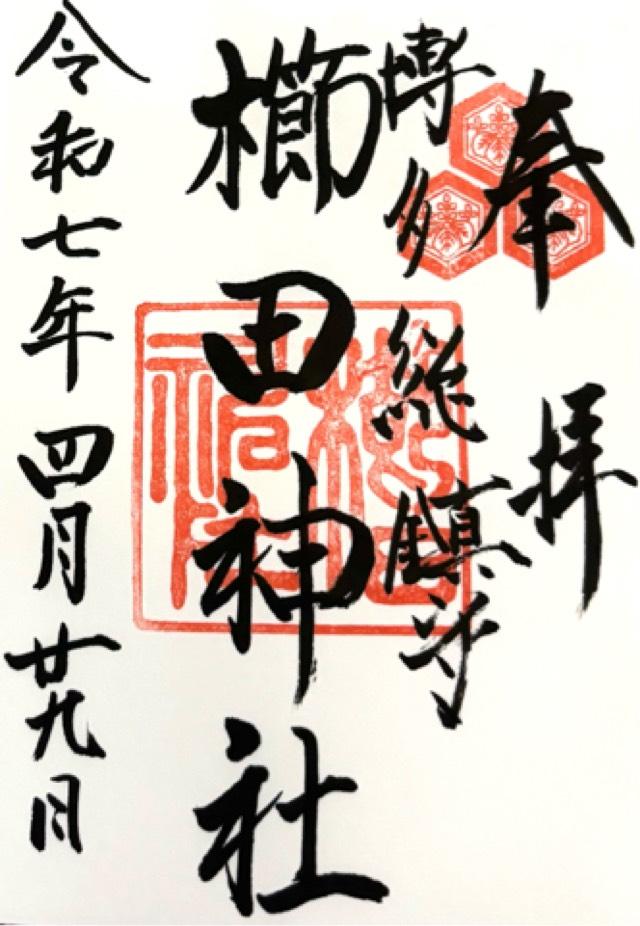 奉拝
博多総鎮守
櫛田神社
令和七年四月廿九日